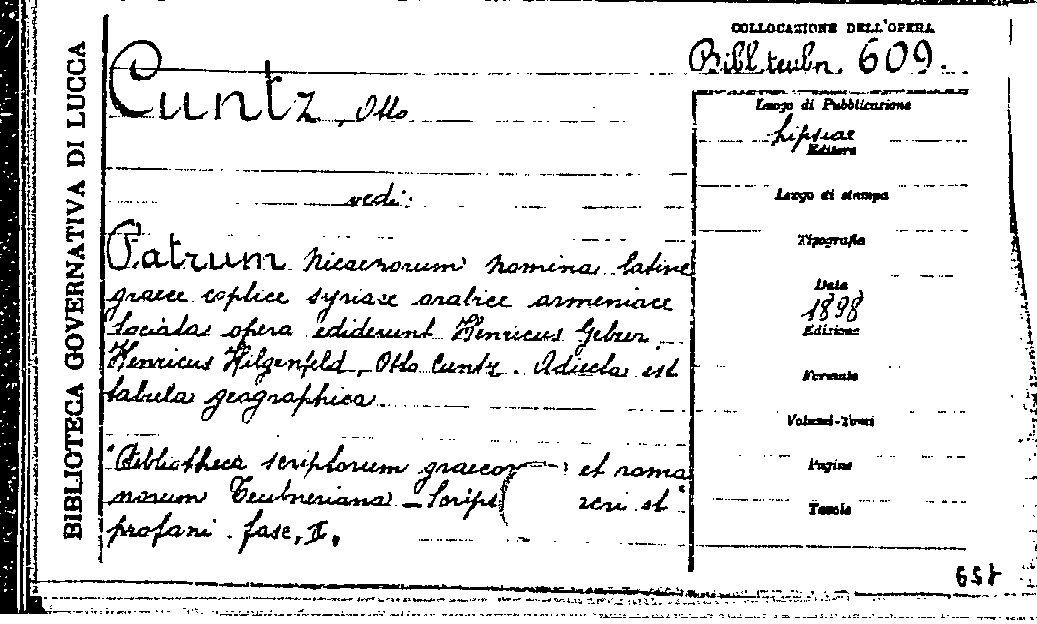 BIBLIOTECA GOVERNATIVA DI LUCCA
COLLOCAZIONE DELL'OPERA
Bibl. teubn. 609.
Cuntz, Otto
vedi:
Patrum Nicaenorum nomina latine
graece coptice syriace arabice armeniace
sociata opera ediderunt Henricus Gelzer,
Henricus Hilgenfeld, Otto Cuntz. Adiecta est
tabula geographica.
"Bibliotheca scriptorum graecor et roma
norum Teubneriana - Script
et"
profani. fasc. II.
Luogo di Pubblicazione
Lipsiae
Editore
Luogo di stampa
Tipografia
Data
1898
Edizione
Formato
Volumi-Tomi
Pagine
Tavole